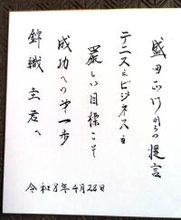 盛田正明からの提言
テニスもビジネスも
厳しい目標こそ
成功への第一歩
錦織圭君へ
令和8年4月28日